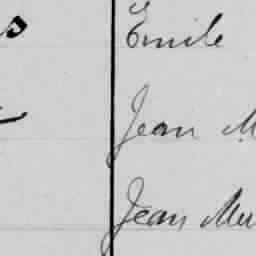 Emile
Jean M
Jean Mu